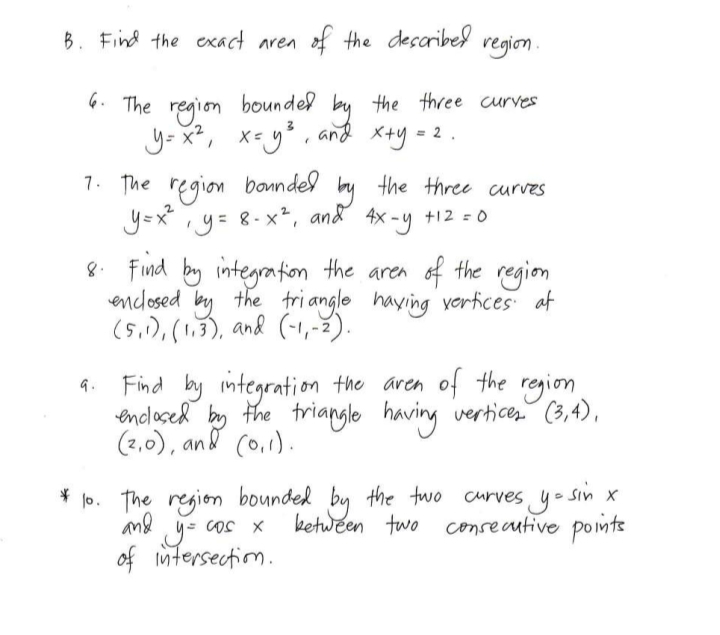 B. Find the exact area of the described region.
6. The region bounded by the three curves
y = x², x = y³, and x+y = 2.
7. The region bounded by the three curves
y = x², y = 8 - x², and 4x - y + 12 = 0
8. Find by integration the area of the region
enclosed by the triangle having vertices at
(5,1), (1,3), and (-1,-2).
9. Find by integration the area of the region
enclosed by the triangle having vertices (3,4),
(2,0), and (0,1).
* 10. The region bounded by the two curves y = sin x
and y = cos x between two consecutive points
of intersection.